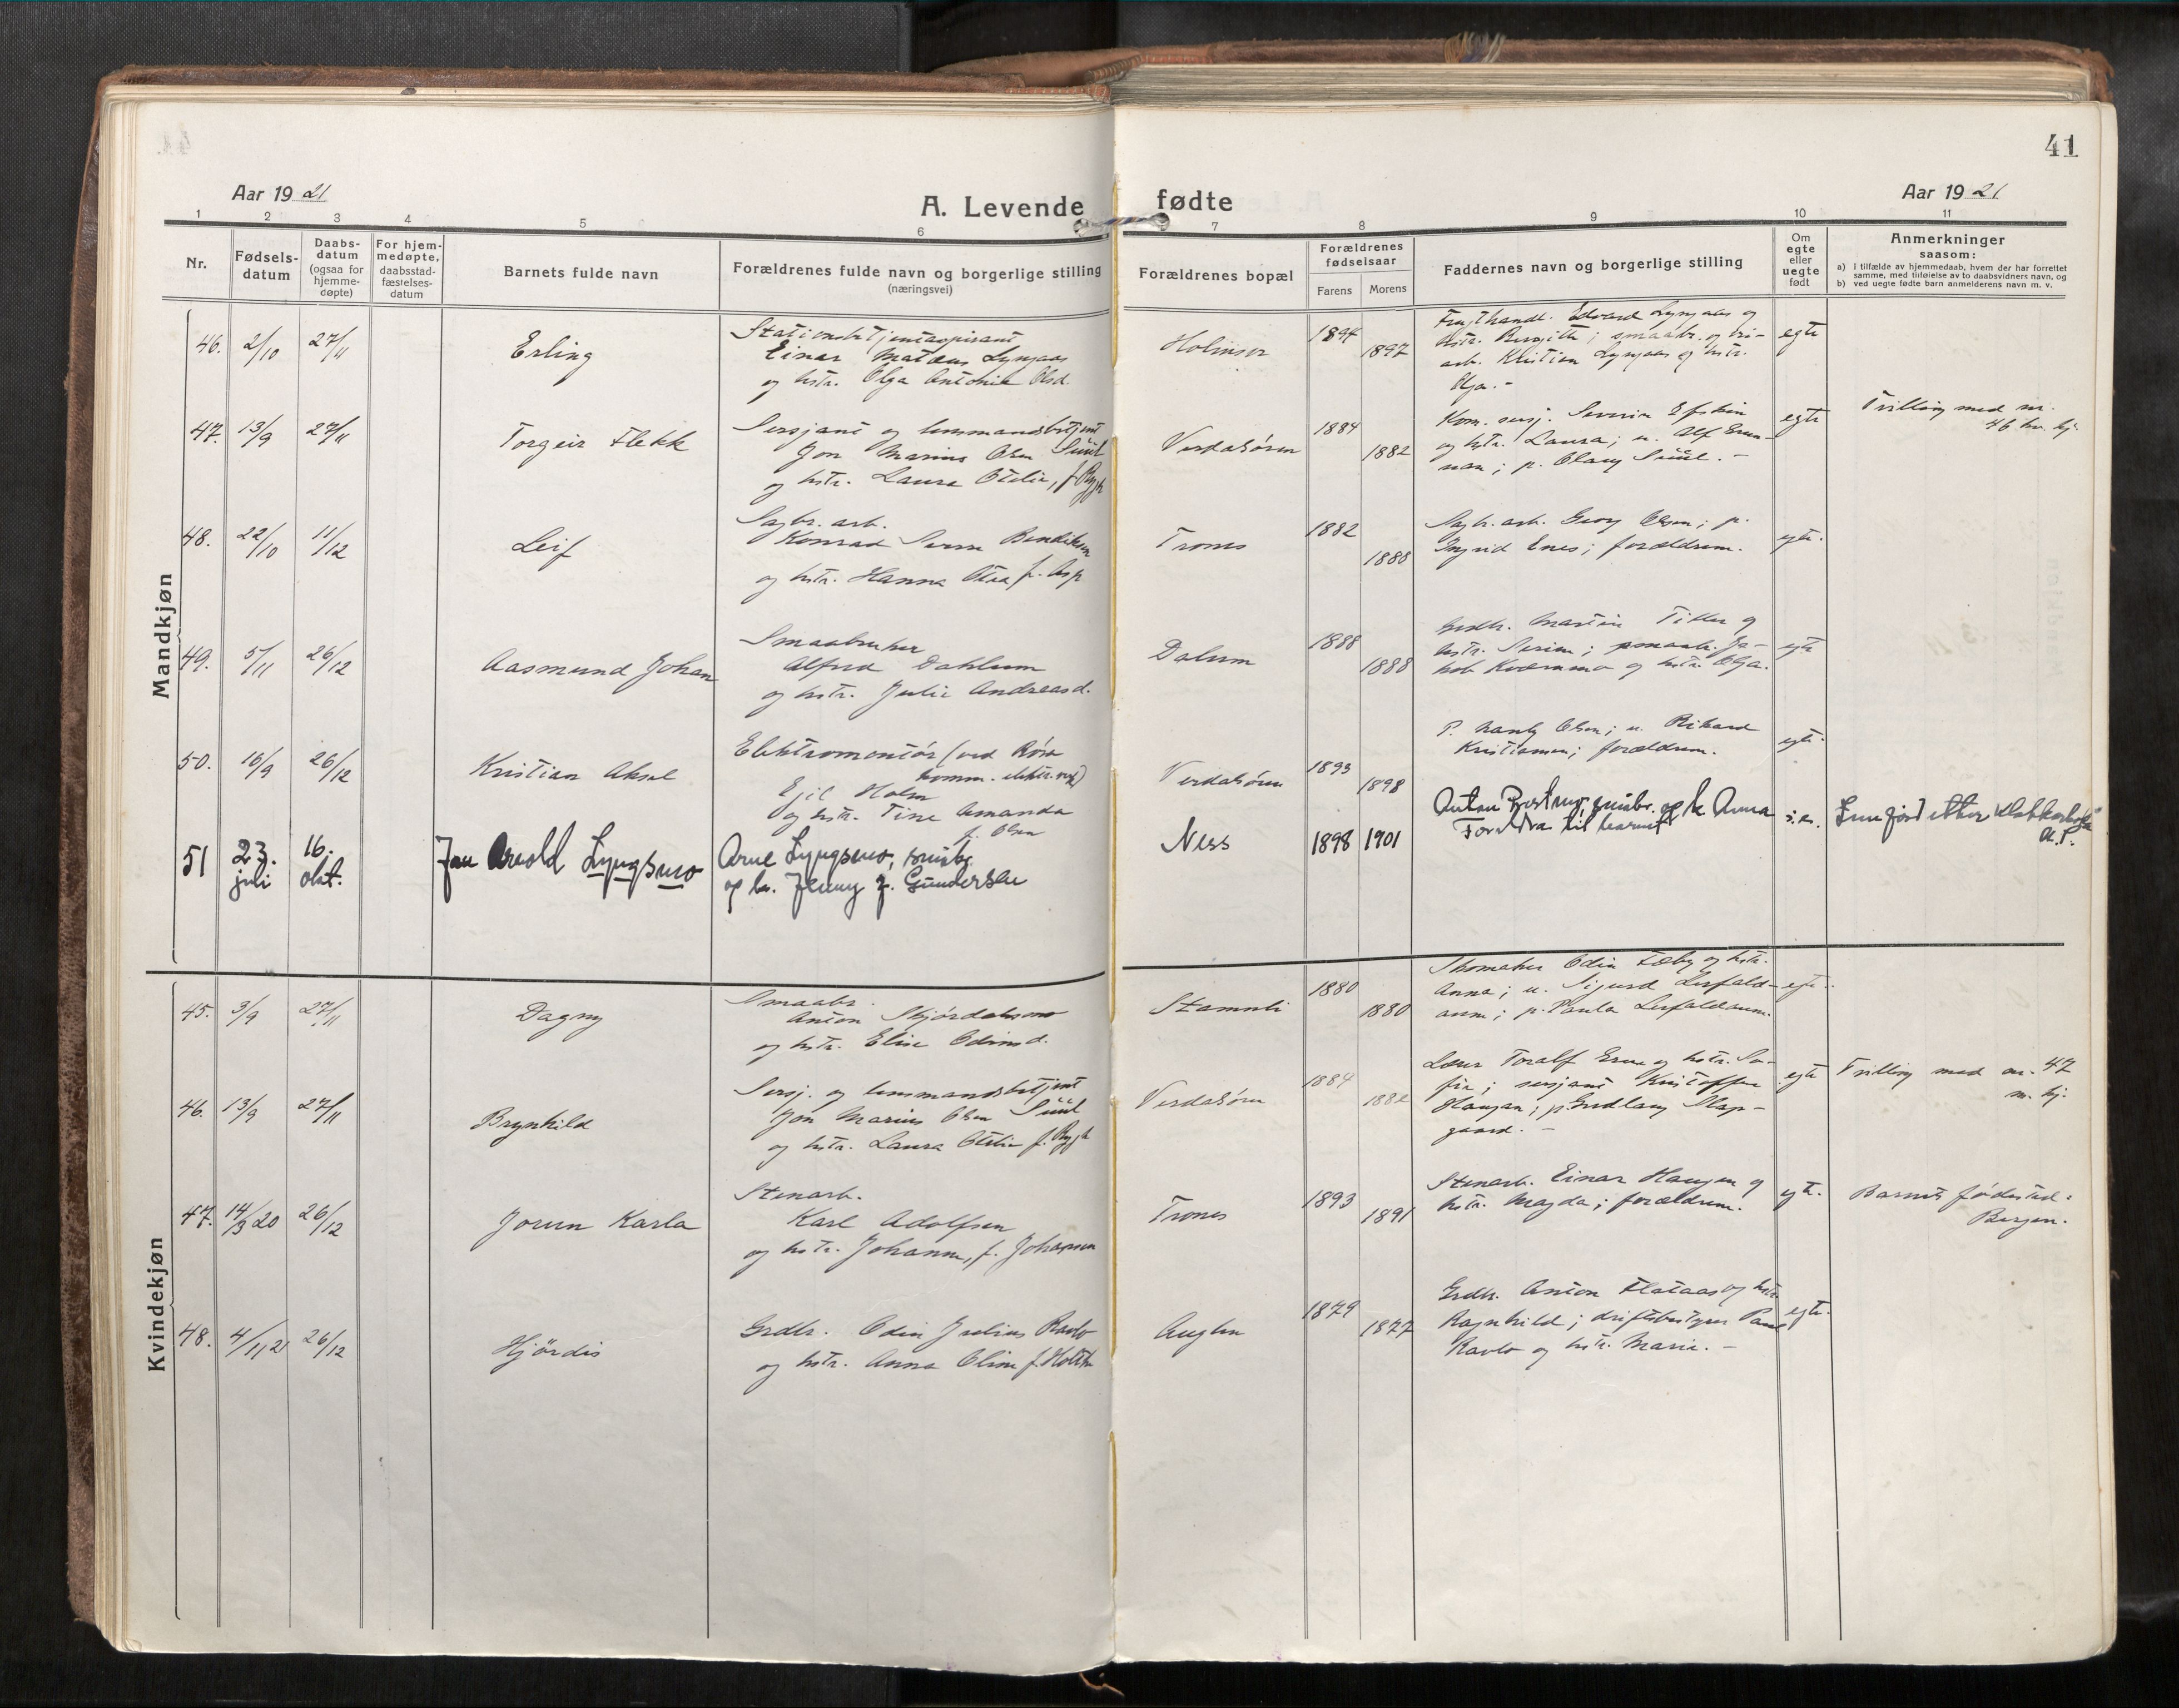 41
Aar 19 21
A. Levende
fødte
Aar 19 21
1 2 3 4 5 6 7 8 9 10 11
Nr.
Fødsels-
datum
Daabs-
datum
(ogsaa for
hjemme-
døpte)
For hjem-
medøpte,
daabsstad-
fæstelses-
datum
Barnets fulde navn
Forældrenes fulde navn og borgerlige stilling
(næringsvei)
Forældrenes bopæl
Forældrenes
fødselsaar
Farens
Morens
Faddernes navn og borgerlige stilling
Om
egte
eller
uegte
født
Anmerkninger
saasom:
a) i tilfælde av hjemmedaab, hvem der har forrettet
samme, med tilføielse av to daabsvidners navn, og
b) ved uegte fødte barn anmelderens navn m. v.
Mandkjøn
46. 2/10 27/11
Erling
Einar
og hstr. Olga Antonie Olsd.
1894
1897
Edvard Lyngaas og
arb. Kristian Lyngaas og hstr.
Olga. -
egte
47. 13/9 27/11
Torgeir Flekk
Sersjant og lensmandsbetjent
Jon Marius Olsen Süül
og hstr. Laura Otelie, f. Rygh
Verdalsøren
1884
1882
Kom. sersj. Severin
og hstr. Laura; u. Alf
p. Olaug Süül. -
egte
Tvilling med nr.
46 kv. kj.
48. 22/10 11/12
Leif
Sagbr. arb.
Konrad Bendiksen
og hstr. Hanna f. Asp
Trones
1882
1888
Sagb. arb. Georg Olsen; p.
Ingrid Enes; forældrene.
egte.
49. 5/11 26/12
Aasmund Johan
Smaabruker
Alfred Dahlum
og hstr. Julie Andreasd.
Dalum
1888
1888
Grdbr. Martin Tiller og
hstr. smaabr. Ja-
kob Kværmmo og hstr. Olga.
egte
50. 16/9 26/12
Kristian Aksel
Elektromontør (ved Røra
komm. elektr.verk)
Egil Holm
og hstr. Tine Amanda
f. Olsen
Verdalsøren
1893
1898
P. Nanly Olsen; u. Rikard
Kristiansen; forældrene.
egte.
51 23. juli 16. okt.
Jan Arnold Lyngsmo
Arne Lyngsmo, småbr.
og h. Jenny f. Gundersen
Ness
1898 1901
Anton småbr. og h. Anna
Foreldra til barnet
Innført etter
Kvindekjøn
45. 3/9 27/11
Dagny
Smaabr.
Anton
og hstr. Elise Odinsd.
Stamnli
1880
1880
Skomaker Odin Fæby og hstr.
Anna; u. Sigurd Lerfald-
aunm; p. Paula Lerfaldaunm.
egte.
46. 13/9 27/11
Brynhild
Sersj. og lensmandsbetjent
Jon Marius Olsen Süül
og hstr. Laura Otelie f. Rygh
Verdalsøren
1884
1882
Lærer Toralf og hstr. So-
fie; sersjant Kristoffer
Haugan; p. Gudlaug Slap-
gaard. -
egte
Tvilling med nr. 47
m. kj.
47. 14/3 20 26/12
Jorun Karla
Stenarb.
Karl Adolfsen
og hstr. Johanne, f. Johansen
Trones
1893
1891
Stenarb. Einar Haugen og
hstr. Magda; forældrene.
egte.
Barnets fødested:
Bergen.
48. 4/11 21 26/12
Hjördis
Grdbr. Odin Julius Ravlo
og hstr. Anna Oline f. Holthe
Auglen
1879
1877
Grdbr. Anton Flataas og hstr.
Ragnhild; driftsbestyrer Paul
Ravlo og hstr. Marie. -
egte.